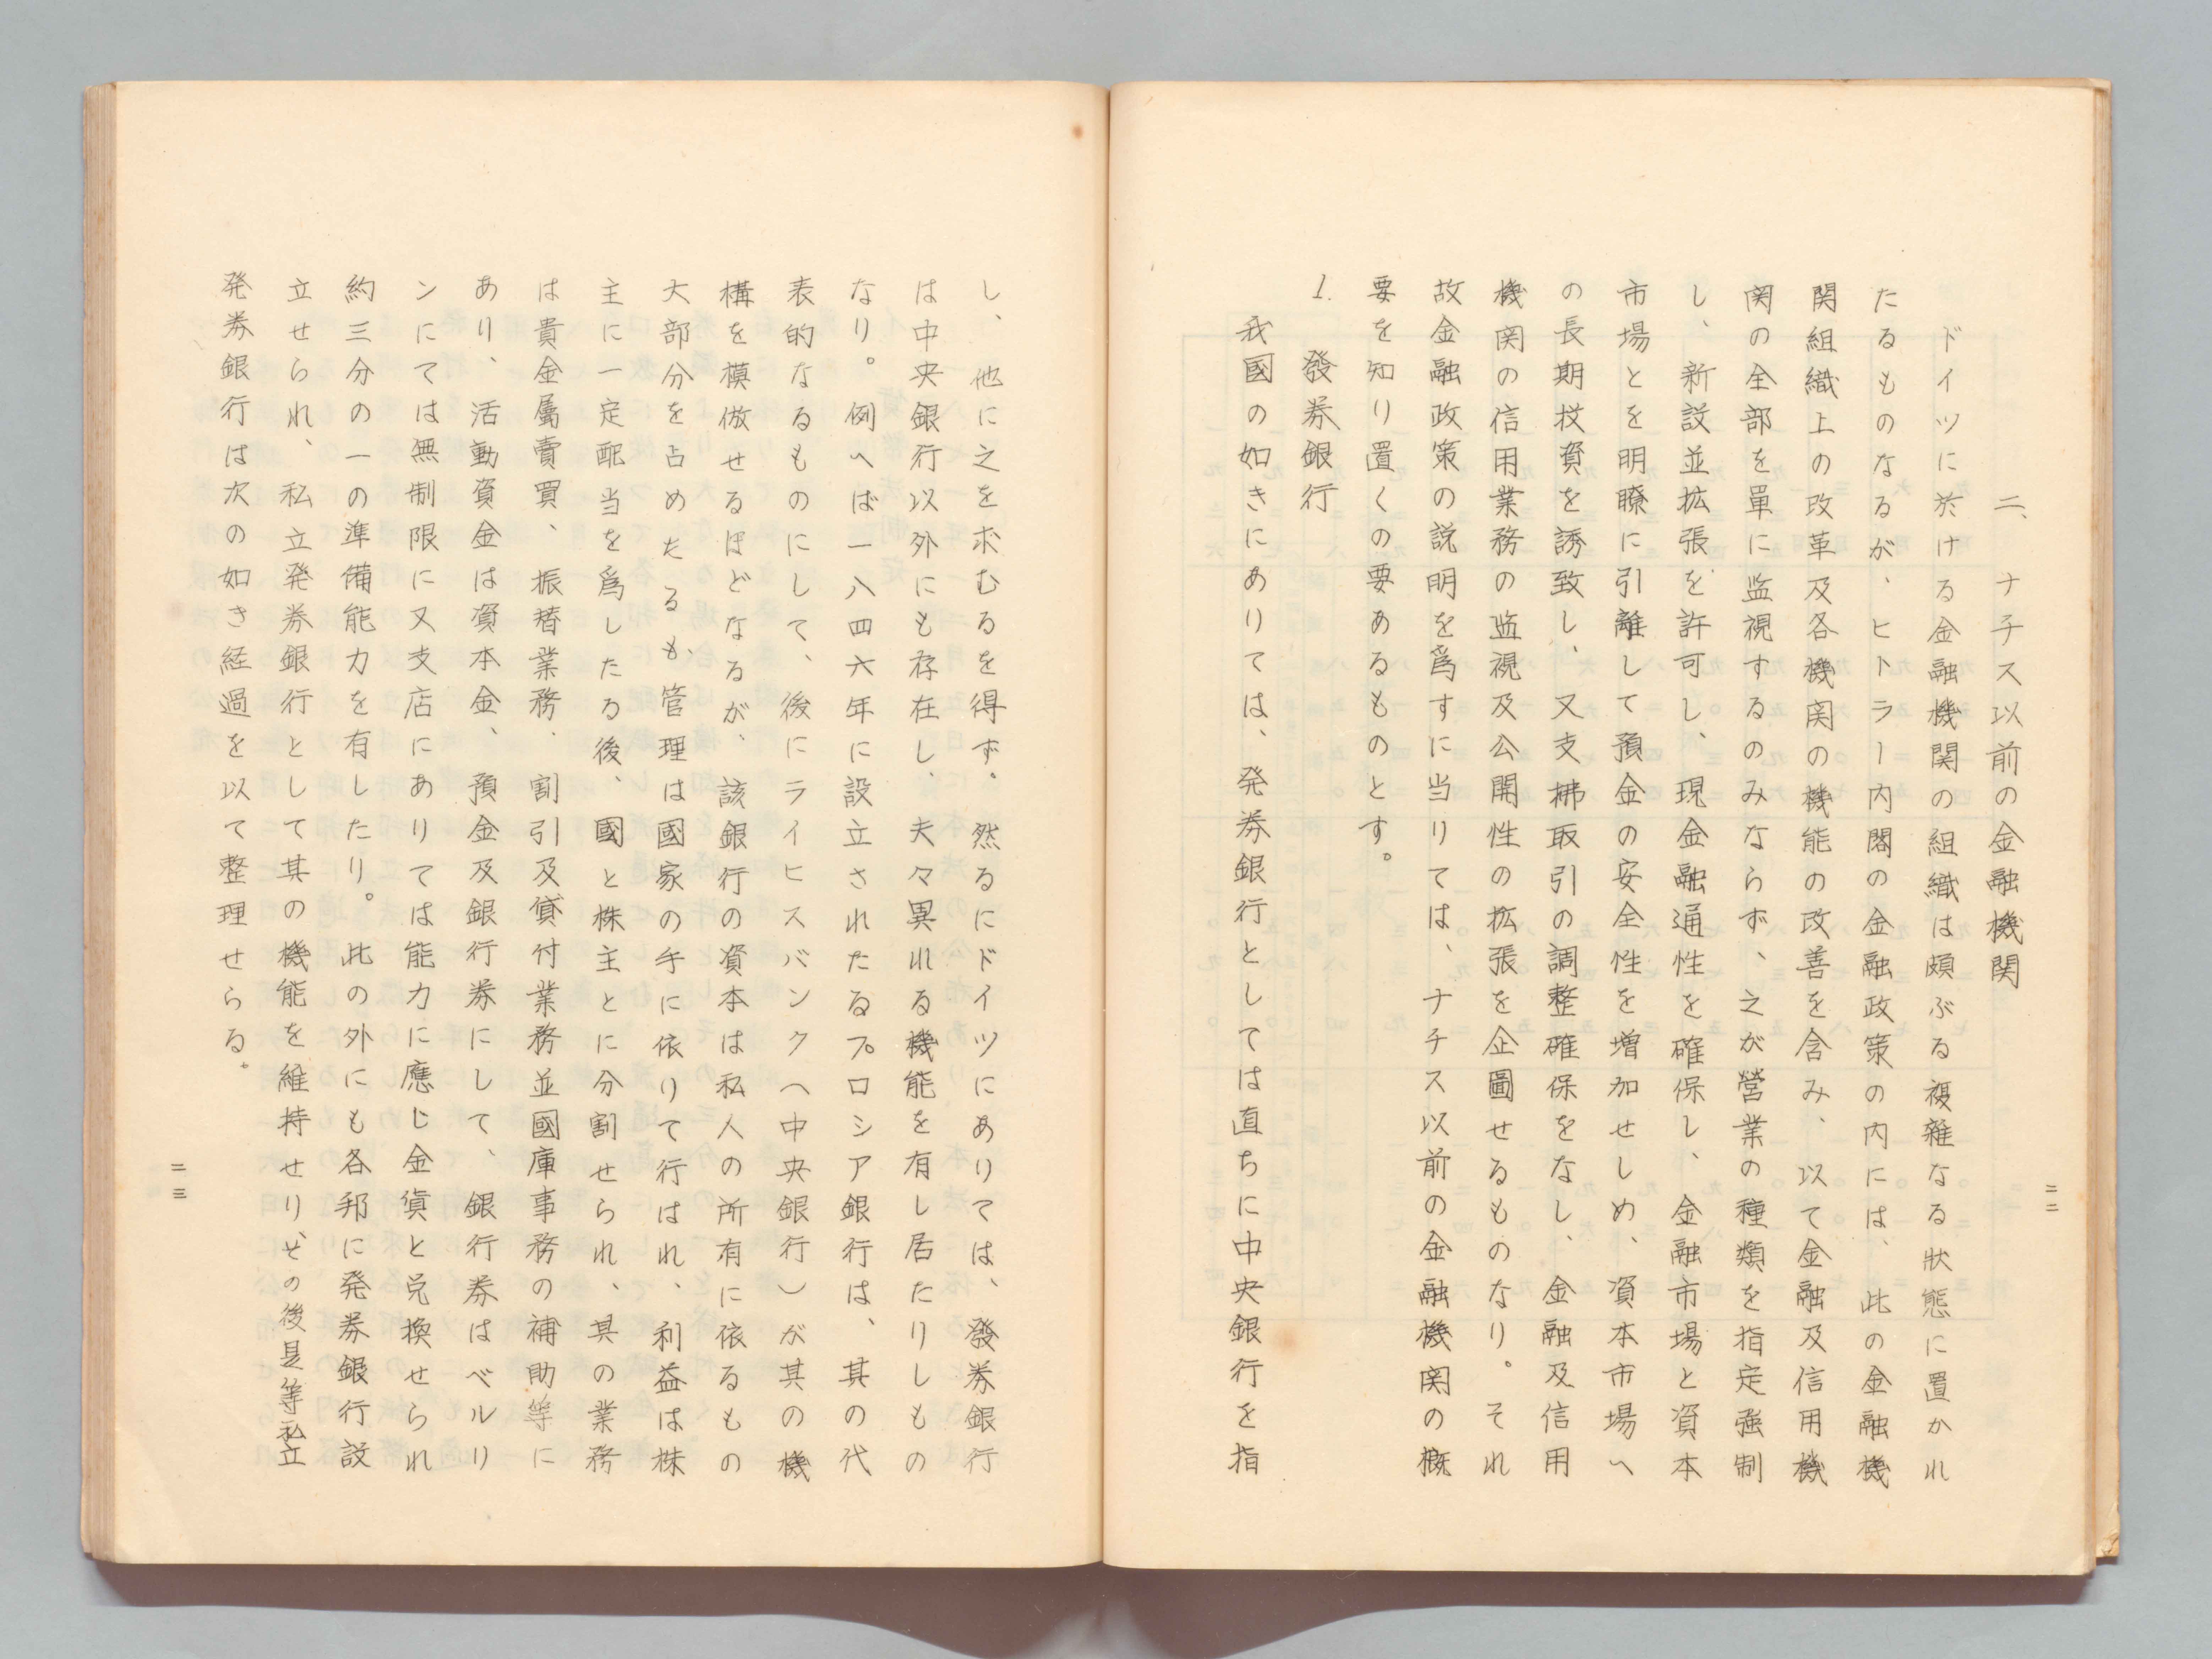 二、ナチス以前の金融機関
ドイツに於ける金融機関の組織は頗ぶる複雑なる狀態に置かれ
たるものなるが、ヒトラー内閣の金融政策の内には、此の金融機
関組織上の改革及各機関の機能の改善を含み、以て金融及信用機
関の全部を單に监視するのみならず、之が營業の種類を指定強制
し、新設並拡張を許可し、現金融通性を確保し、金融市場と資本
市場とを明瞭に引離して預金の安全性を増加せしめ、資本市場へ
の長期投資を誘致し、又支拂取引の調整確保をなし、金融及信用
機関の信用業務の监視及公開性の拡張を企圖せるものなり。それ
故金融政策の説明を爲すに当りては、ナチス以前の金融機関の概
要を知り置くの要あるものとす。
1. 發券銀行
我國の如きにありては、発券銀行としては直ちに中央銀行を指
二二
し、他に之を求むるを得ず。然るにドイツにありては、發券銀行
は中央銀行以外にも存在し、夫々異れる機能を有し居たりしもの
なり。例へば一八四六年に設立されたるプロシア銀行は、其の代
表的なるものにして、後にライヒスバンク(中央銀行)が其の機
構を模倣せるほどなるが、該銀行の資本は私人の所有に依るもの
大部分を占めたるも、管理は國家の手に依りて行はれ、利益は株
主に一定配当を爲したる後、國と株主とに分割せられ、其の業務
は貴金屬賣買、振替業務、割引及貸付業務並國庫事務の補助等に
あり、活動資金は資本金、預金及銀行券にして、銀行券はベルリ
ンにては無制限に又支店にありては能力に應じ金貨と兌換せられ
約三分の一の準備能力を有したり。此の外にも各邦に発券銀行設
立せられ、私立発券銀行として其の機能を維持せり、その後是等私立
発券銀行は次の如き経過を以て整理せらる。
二三